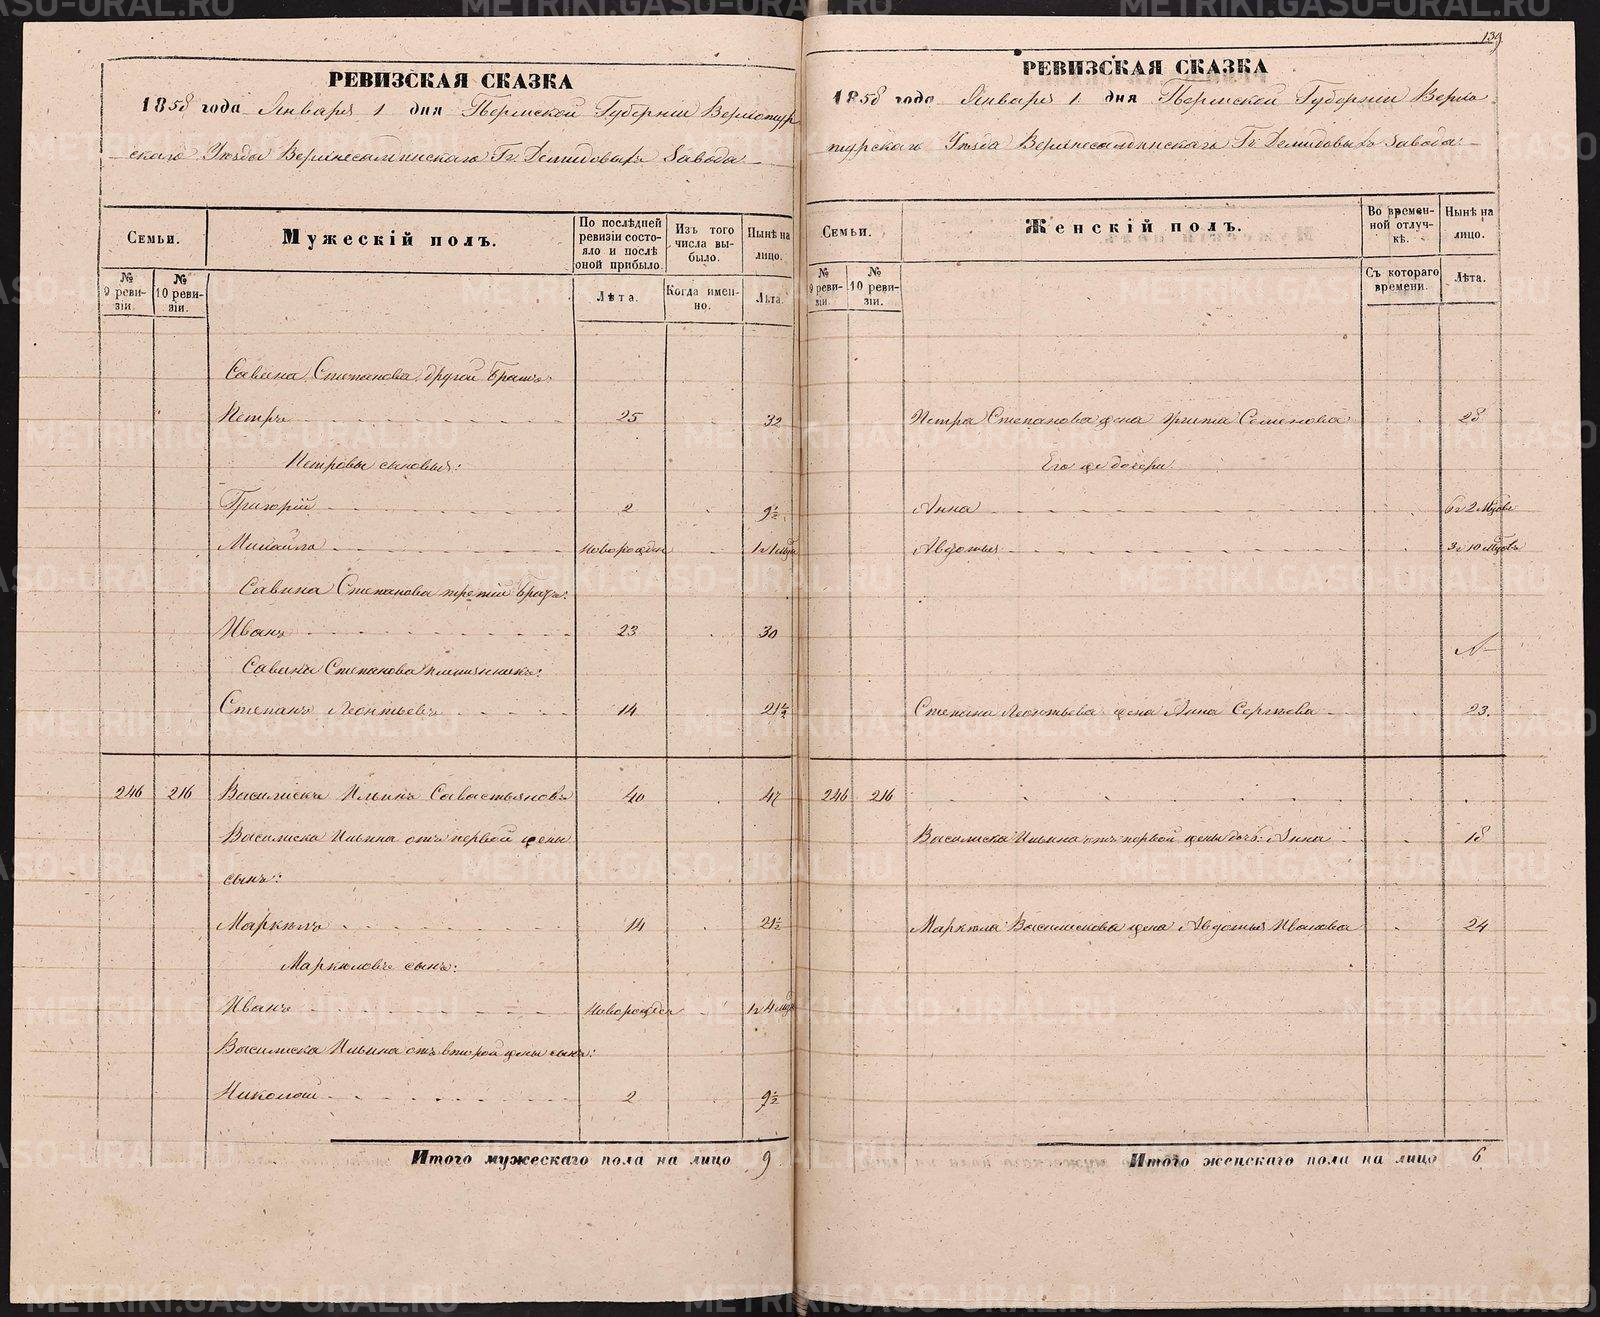 139
РЕВИЗСКАЯ СКАЗКА
1858 года Января 1 дня Пермской Губерніи Верхотур
скаго Уѣзда Верхнесалдинскаго Гг. Демидовыхъ Завода
Семьи.
Мужескій полъ.
По послѣдней ревизіи состояло и послѣ оной прибыло.
Изъ того числа выбыло.
Нынѣ на лицо.
№ 9 ревизіи.
№ 10 ревизіи.
Лѣта.
Когда именно.
Лѣта.
Савина Степанова другой братъ:
Петръ 25 32
Петровы сыновья:
Григорій 2 9½
Михайла новорожден 1 г 1 мѣс
Савина Степанова третій братъ:
Иванъ 23 30
Савина Степанова племянникъ:
Степанъ Леонтьевъ 14 21½
246 216 Василискъ Ильинъ Савастьяновъ 40 47
Василиска Ильина отъ первой жены
сынъ:
Маркелъ 14 21½
Маркеловъ сынъ:
Иванъ новорожден 1 г 4 мѣс
Василиска Ильина отъ второй жены сынъ:
Николай 2 9½
Итого мужескаго пола на лицо 9
РЕВИЗСКАЯ СКАЗКА
1858 года Января 1 дня Пермской Губерніи Верхо
турскаго Уѣзда Верхнесалдинскаго Гг. Демидовыхъ Завода
Семьи.
Женскій полъ.
Во временной отлучкѣ.
Нынѣ на лицо.
№ 9 ревизіи.
№ 10 ревизіи.
Съ котораго времени.
Лѣта.
Петра Степанова жена Семенова 28
Его же дочери
Анна 6 г 2 мѣсв
Авдотья 3 г 10 мѣсв
Степана Леонтьева жена Анна Сергѣева 23.
246 216
Василиска Ильина отъ первой жены дочь: Анна 18
Маркела Василискова жена Авдотья Иванова 24
Итого женскаго пола на лицо 6